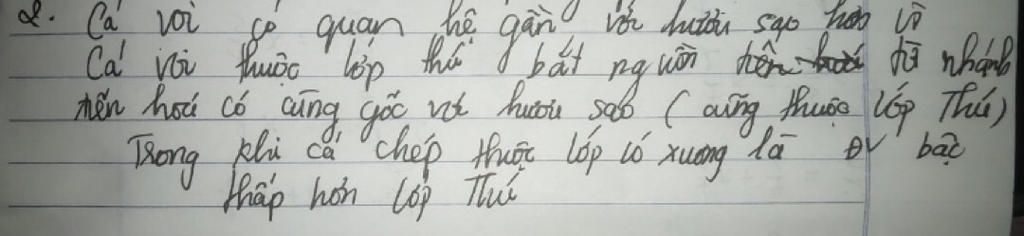 2. Cá voi có quan hệ gần với hươu sao hơn vì
Cá voi thuộc lớp thú bắt nguồn từ nhánh
tiến hoá có cùng gốc với hươu sao (cũng thuộc lớp Thú)
Trong khi cá chép thuộc lớp cá xương là ĐV bậc
thấp hơn lớp Thú